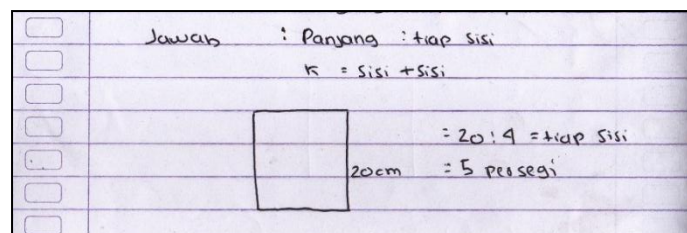 Jawab : Panjang : tiap sisi
K = sisi + sisi
= 20 : 4 = tiap sisi
20cm = 5 persegi